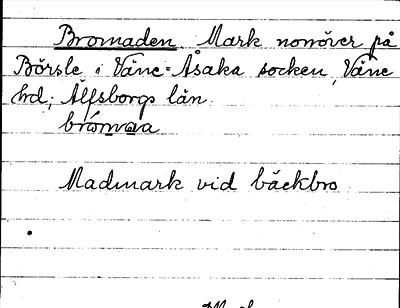 Bromaden Mark norröver på
Börsle i Väne-Åsaka socken, Väne
hrd; Älfsborgs län.
Madmark vid bäckbro